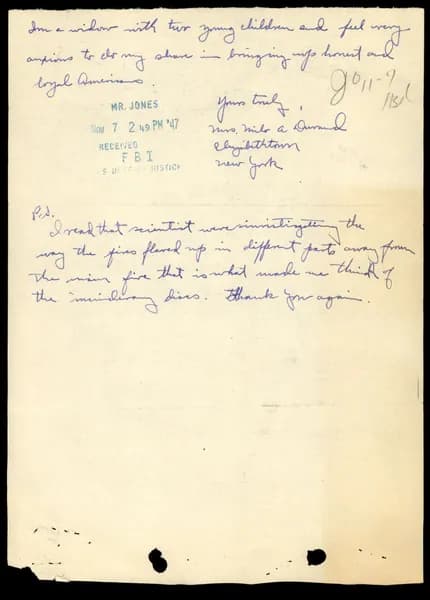 I'm a widow with two young children and feel very
anxious to do my share in bringing up honest and
loyal Americans.
Yours truly,
Mrs. Milo A Durand
Elizabethtown
New York
MR. JONES
Nov 7 2 49 PM '47
RECEIVED
F B I
JUSTICE
go 11-9
P.S.
I read that scientist were investigating the
way the fires flared up in different parts away from
the main fire that is what made me think of
the discs. Thank You again.